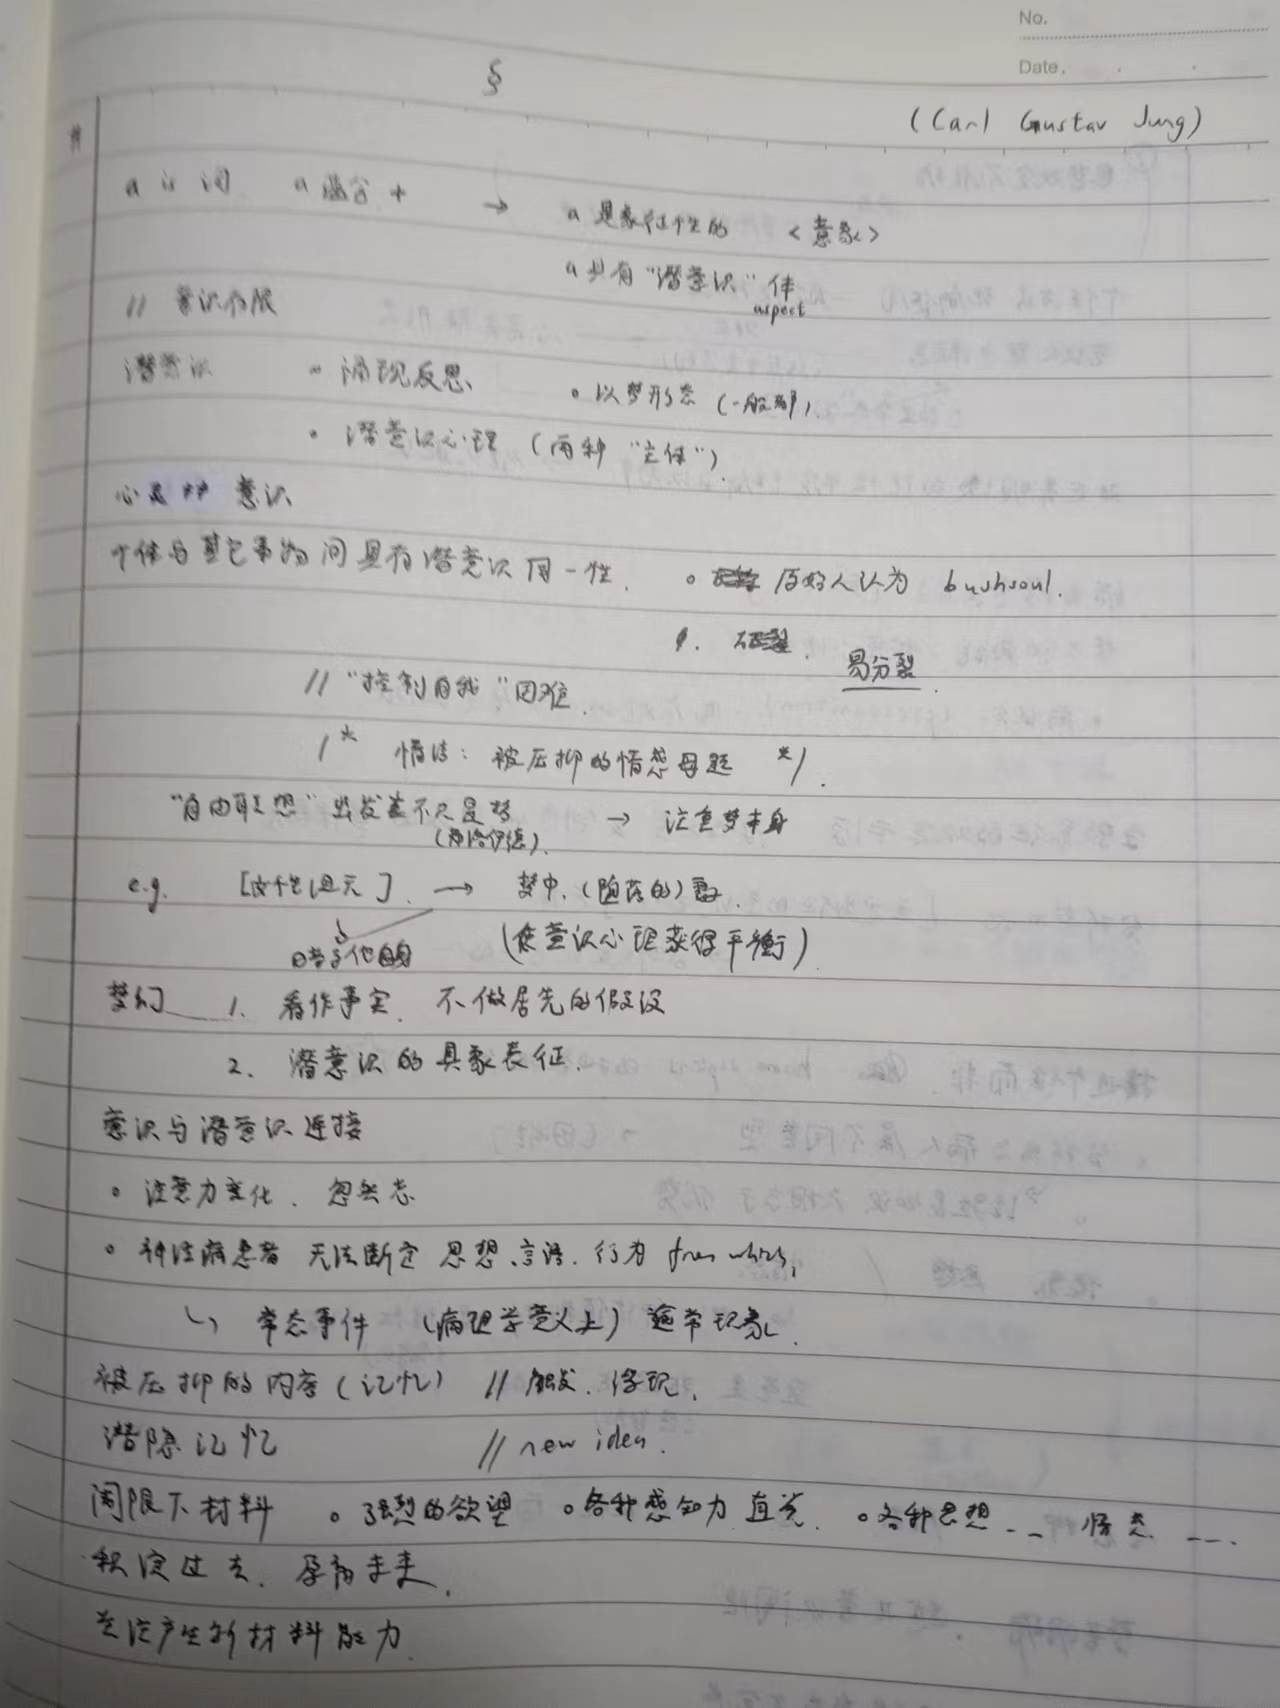 No.
Date.
§
(Carl Gustav Jung)
a is 词. a 涵含 + → a 是象征性的 <意象>
a 具有“潜意识”体
aspect
// 意识有限
潜意识 ◦ 涌现反思 ◦ 以梦形态 (一般都)
◦ 潜意识心理 (两种“主体”)
心灵 意识
个体与其它事物间具有潜意识同一性. ◦ 原始人认为 bushsoul.
易分裂.
// “控制自我”困难.
/* 情结: 被压抑的情感母题 */.
“自由联想”出发点不只是梦 → 注重梦本身
(弗洛伊德).
e.g. → 梦中, (堕落的)
(使意识心理获得平衡)
梦幻 1. 看作事实. 不做居先的假设
2. 潜意识的具象表征.
意识与潜意识连接
◦ 注意力变化. 忽然忘
◦ 神经病患者 无法断定 思想. 言语. 行为 from which,
↳ 常态事件 (病理学意义上) 通常现象.
被压抑的内容 (记忆) // 触发. 浮现.
潜隐记忆 // new idea.
阈限下材料 ◦ 强烈的欲望 ◦ 各种感知力 直觉. ◦ 各种思想 ... 情态 ....
积淀过去. 孕育未来.
关注产生新材料能力.